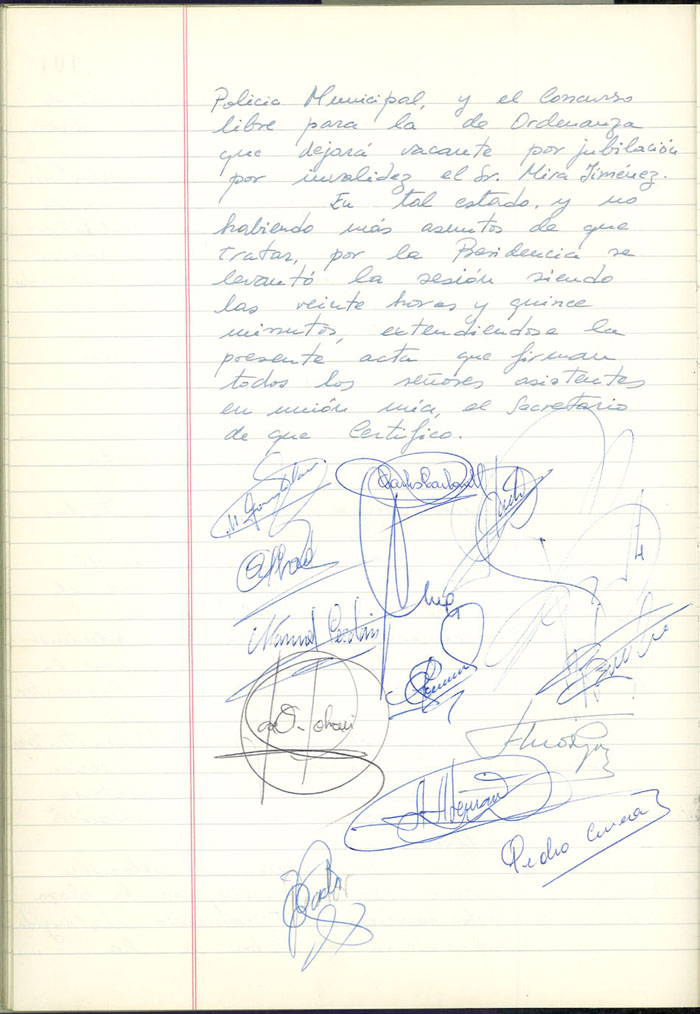 Policia Municipal, y el Concurso
libre para la de Ordenanza
que dejará vacante por jubilación
por invalidez el Sr. Mira Jiménez.
En tal estado, y no
habiendo más asuntos de que
tratar, por la Presidencia se
levantó la sesión siendo
las veinte horas y quince
minutos, extendiendose la
presente acta que firman
todos los señores asistentes
en unión mia, el Secretario
de que Certifico.
Pedro